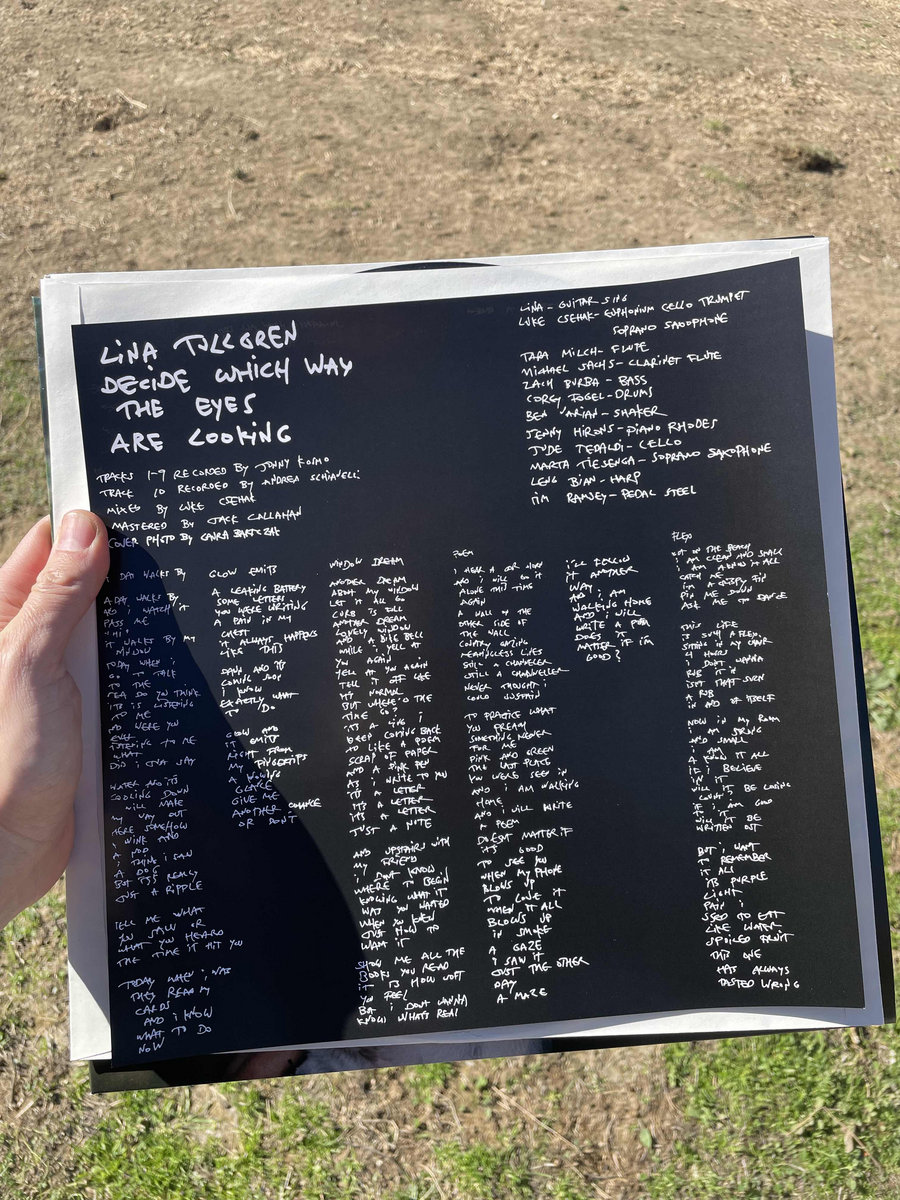 LINA TULLGREN
DECIDE WHICH WAY
THE EYES
ARE LOOKING
TRACKS 1-9 RECORDED BY JONNY KOSMO
TRACK 10 RECORDED BY ANDREA SCHIAVELLI
MIXED BY LUKE CSEHAK
MASTERED BY JACK CALLAHAN
COVER PHOTO BY CHARA BARTCZAK
LINA - GUITAR SING
LUKE CSEHAK - EUPHONIUM CELLO TRUMPET
SOPRANO SAXOPHONE
TARA MILCH - FLUTE
MICHAEL SACHS - CLARINET FLUTE
ZACH BURBA - BASS
COREY FOGEL - DRUMS
BEN VARIAN - SHAKER
JENNY HIRONS - PIANO RHODES
JUDE TEDALDI - CELLO
MARTA TIESENGA - SOPRANO SAXOPHONE
LENG BIAN - HARP
TIM RAMSEY - PEDAL STEEL
A DAY WALKS BY
A DAY WALKS BY
AND I WATCH IT
PASS ME
"HI"
IT WALKS BY MY
WINDOW
TODAY WHEN I
GO TO TALK
TO THE
TEA DO YOU THINK
ITS LISTENING
TO ME
OR WERE YOU
EVER
LISTENING TO ME
WHAT
DID I JUST SAY
WATER AND ITS
COOLING DOWN
I WILL MAKE
MY WAY OUT
HERE SOMEHOW
A WINK AND
A NOD
I THINK I SAW
A DOG
BUT ITS REALLY
JUST A RIPPLE
TELL ME WHAT
YOU SAW OR
WHAT YOU HEARD
THE TIME IT HIT YOU
TODAY WHEN I WAS
THEY READ MY
CARDS
AND I KNOW
WHAT TO DO
NOW
GLOW EMITS
A LEAKING BATTERY
SOME LETTERS
YOU WERE WRITING
A PAIN IN MY
CHEST
IT ALWAYS HAPPENS
LIKE THIS
DAWN AND ITS
COMING NOW
I KNOW
EXACTLY WHAT
TO DO
GLOW AND
IT EMITS
RIGHT FROM
MY FINGERTIPS
A YOUNG
GLANCE
GIVE ME
ANOTHER CHANCE
OR DON'T
WINDOW DREAM
ANOTHER DREAM
ABOUT MY WINDOW
LET IT ALL GO
CURB IS TALL
ANOTHER DREAM
LONELY WINDOW
AND A BIKE BELL
WHILE I YELL AT
YOU AGAIN
YELL AT YOU AGAIN
TELL IT OFF LIKE
ITS NORMAL
BUT WHERE'D THE
TIME GO?
ITS A LINE I
KEEP COMING BACK
TO LIKE A OPEN
SCRAP OF PAPER
AND A PINK PEN
AS I WRITE TO YOU
ITS A LETTER
ITS A LETTER
ITS A LETTER
JUST A NOTE
AND UPSTAIRS WITH
MY FRIEND
I DONT KNOW
WHERE TO BEGIN
KNOWING WHAT IT
WAS YOU WANTED
WHEN YOU KNEW
JUST HOW TO
WANT IT
SHOW ME ALL THE
BOOKS YOU READ
IT IS HOW SOFT
YOU FEEL
BUT I DONT WANNA
KNOW WHATS REAL
POEM
I HEAR A OR NOW
AND I WILL GO IT
ALONE THIS TIME
AGAIN
A HUM ON THE
OTHER SIDE OF
THE WALL
COUNTRY EATING
MEANINGLESS LIVES
STILL A CHANNELER
STILL A CHANNELER
NEVER THOUGHT I
COULD SUSTAIN
TO PRACTICE WHAT
YOU PREACH
SOMETHING NEWER
FOR ME
PINK AND GREEN
THE LAST PLACE
YOU WERE SEEN IN
AND I AM WALKING
HOME
AND I WILL WRITE
A POEM
DOESNT MATTER IF
ITS GOOD
TO SEE YOU
WHEN MY PHONE
BLOWS UP
TO LOVE IT
WHEN IT ALL
BLOWS UP
IN SMOKE
A GAZE
I SAW IT
JUST THE OTHER
DAY
A MAZE
I'LL FOLLOW
IT ANOTHER
WAY
AND I AM
WALKING HOME
AND I WILL
WRITE A POEM
DOES IT
MATTER IF I'M
GOOD?
FLEX
OUT ON THE BEACH
I AM CLEAN AND SMALL
I AM A KNOW IT ALL
CATCH ME
PIN ME DOWN
ASK ME TO DANCE
THIS LIFE
IS SUCH A FLEX
SITTING IN MY CHAIR
4 HOURS
I DON'T WANNA
RUB IT IN
ISNT THAT SUCH
A RUB
IN AND OF ITSELF
NOW IN MY ROOM
I AM STRONG
AND SMALL
I AM
A KNOW IT ALL
IF I BELIEVE
IN IT
WILL IT BE LOSING
COUNT?
IF I AM GOOD
TO IT
WILL IT BE
WRITTEN OUT
BUT I WANT
TO REMEMBER
IT ALL
PURPLE
LIGHT
PAIN I
USED TO EAT
LIKE WATER
SPOILED FRUIT
THIS ONE
HAS ALWAYS
TASTED WRONG